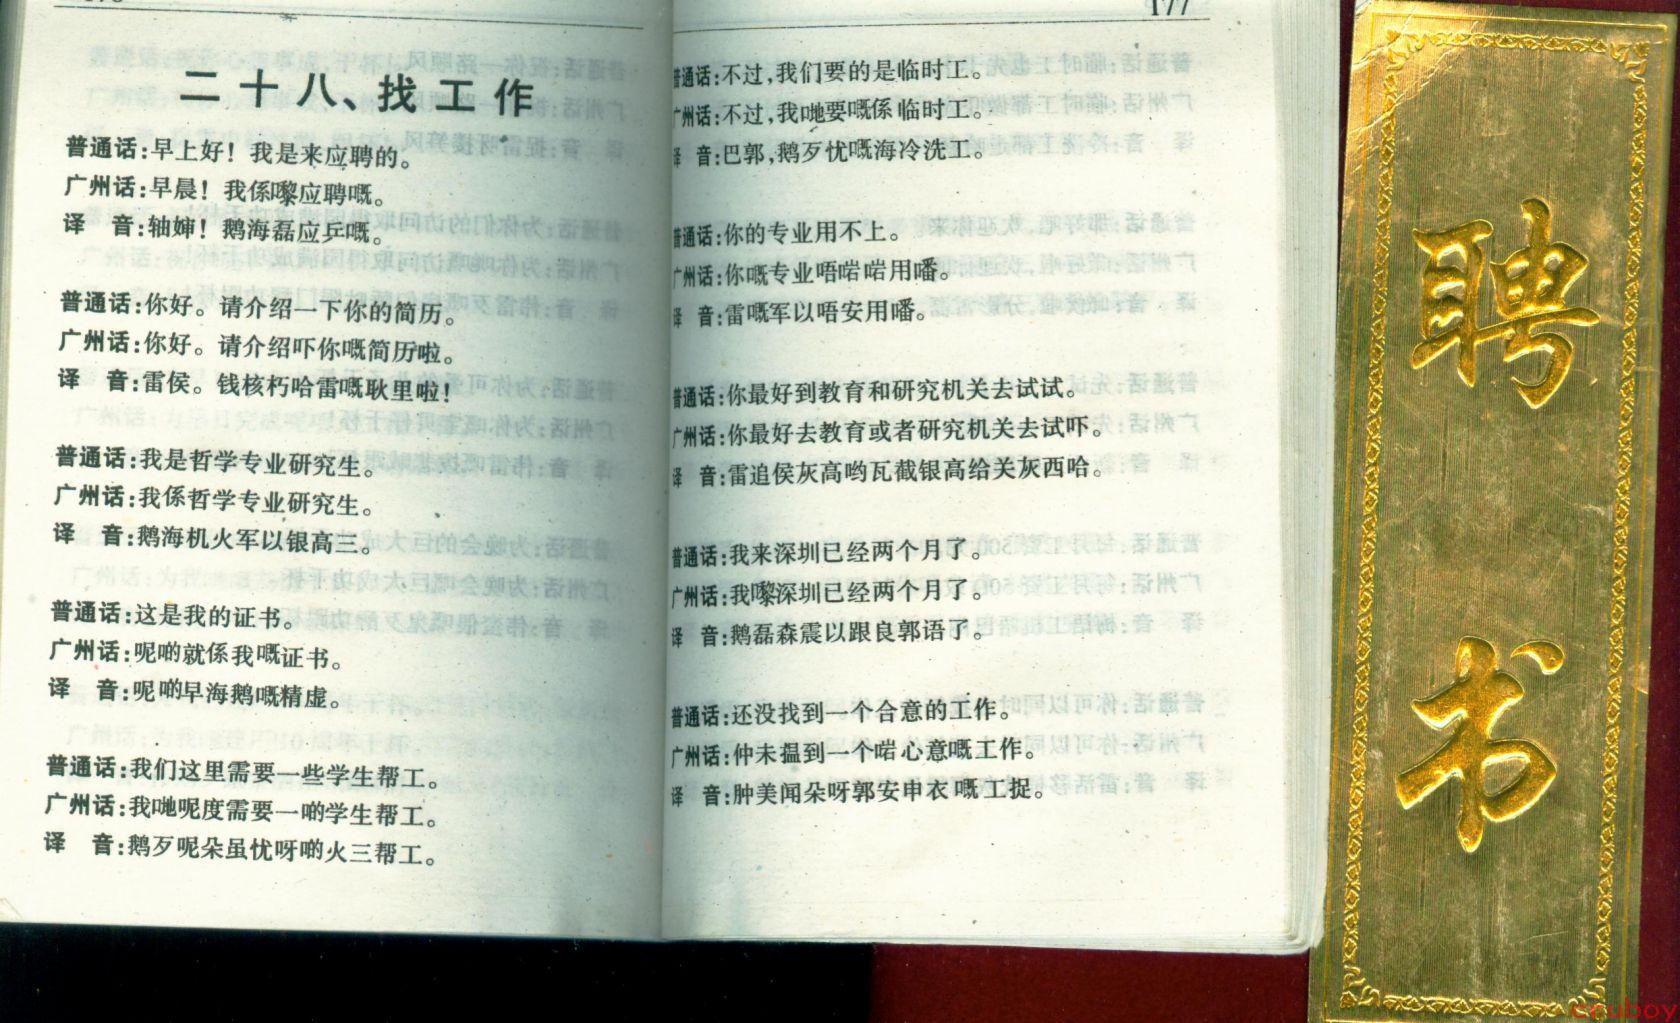 二十八、找工作
普通话:早上好!我是来应聘的。
广州话:早晨!我係嚟应聘嘅。
译 音:轴婶!鹅海磊应乒嘅。
普通话:你好。请介绍一下你的简历。
广州话:你好。请介绍吓你嘅简历啦。
译 音:雷侯。钱核朽哈雷嘅耿里啦!
普通话:我是哲学专业研究生。
广州话:我係哲学专业研究生。
译 音:鹅海机火军以银高三。
普通话:这是我的证书。
广州话:呢啲就係我嘅证书。
译 音:呢啲早海鹅嘅精虚。
普通话:我们这里需要一些学生帮工。
广州话:我哋呢度需要一啲学生帮工。
译 音:鹅歹呢朵虽忧呀啲火三帮工。
177
普通话:不过,我们要的是临时工。
广州话:不过,我哋要嘅係临时工。
译 音:巴郭,鹅歹忧嘅海冷洗工。
普通话:你的专业用不上。
广州话:你嘅专业唔啱啱用噃。
译 音:雷嘅军以唔安用噃。
普通话:你最好到教育和研究机关去试试。
广州话:你最好去教育或者研究机关去试吓。
译 音:雷追侯灰高哟瓦截银高给关灰西哈。
普通话:我来深圳已经两个月了。
广州话:我嚟深圳已经两个月了。
译 音:鹅磊森震以跟良郭语了。
普通话:还没找到一个合意的工作。
广州话:仲未揾到一个啱心意嘅工作。
译 音:肿美闻朵呀郭安申衣嘅工捉。
聘书
czuboy